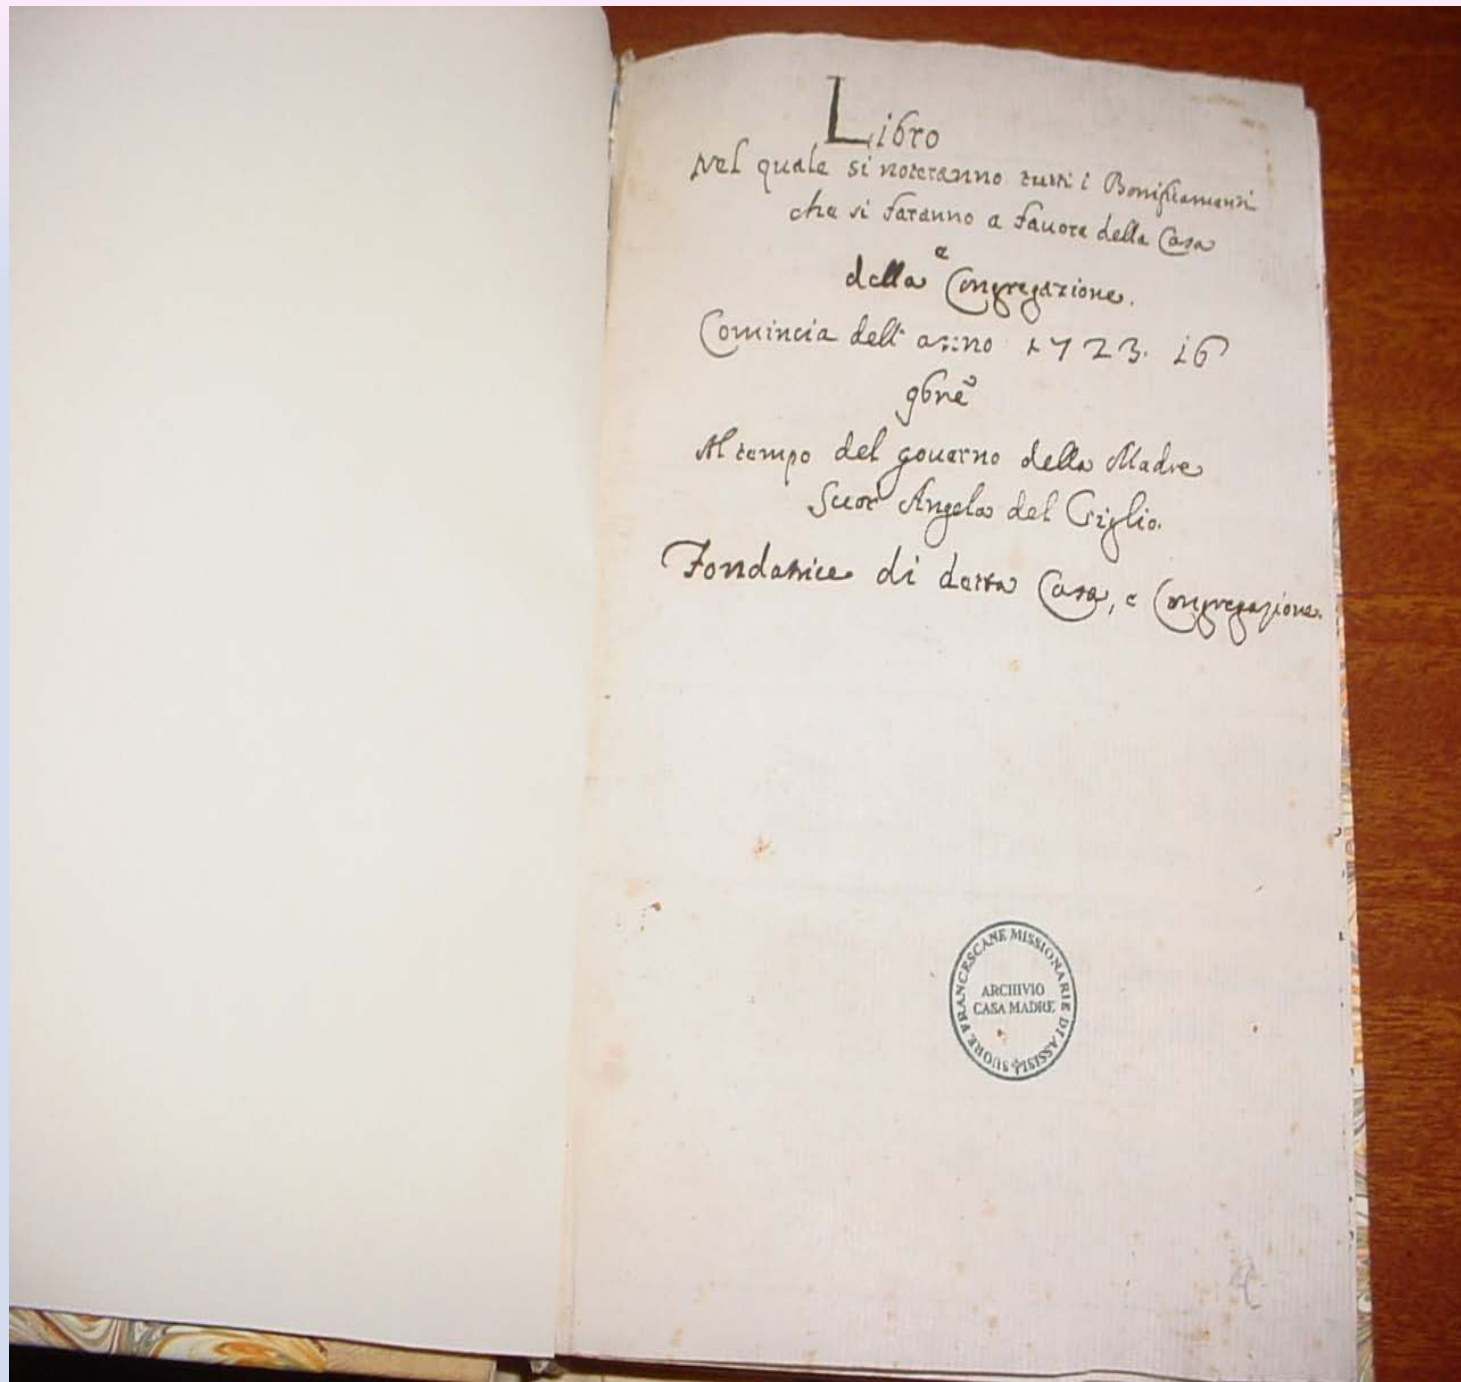 Libro
Nel quale si noteranno tutti i Bonificamenti
che si faranno a fauore della Casa
e
della Congregazione.
Comincia dell' anno 1723. 16
9bre
Al tempo del gouerno della Madre
Suor Angela del Giglio.
Fondatrice di detta Casa, e Congregazione.
SUORE FRANCESCANE MISSIONARIE DI ASSISI
ARCHIVIO
CASA MADRE